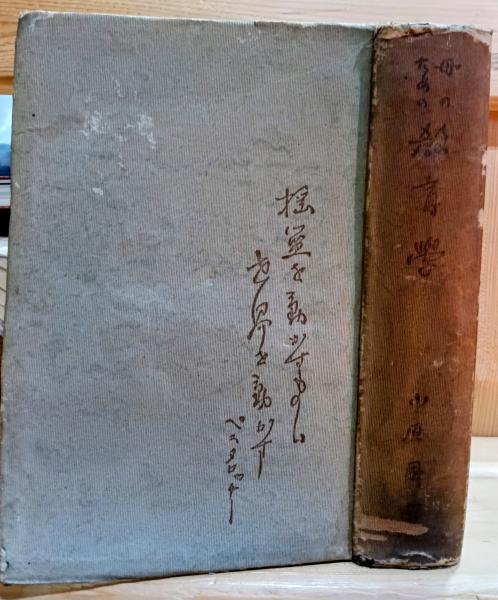 母の
ための
教育學
小原國
搖籃を動かすものは
世界を動かす
ペスタロッチー